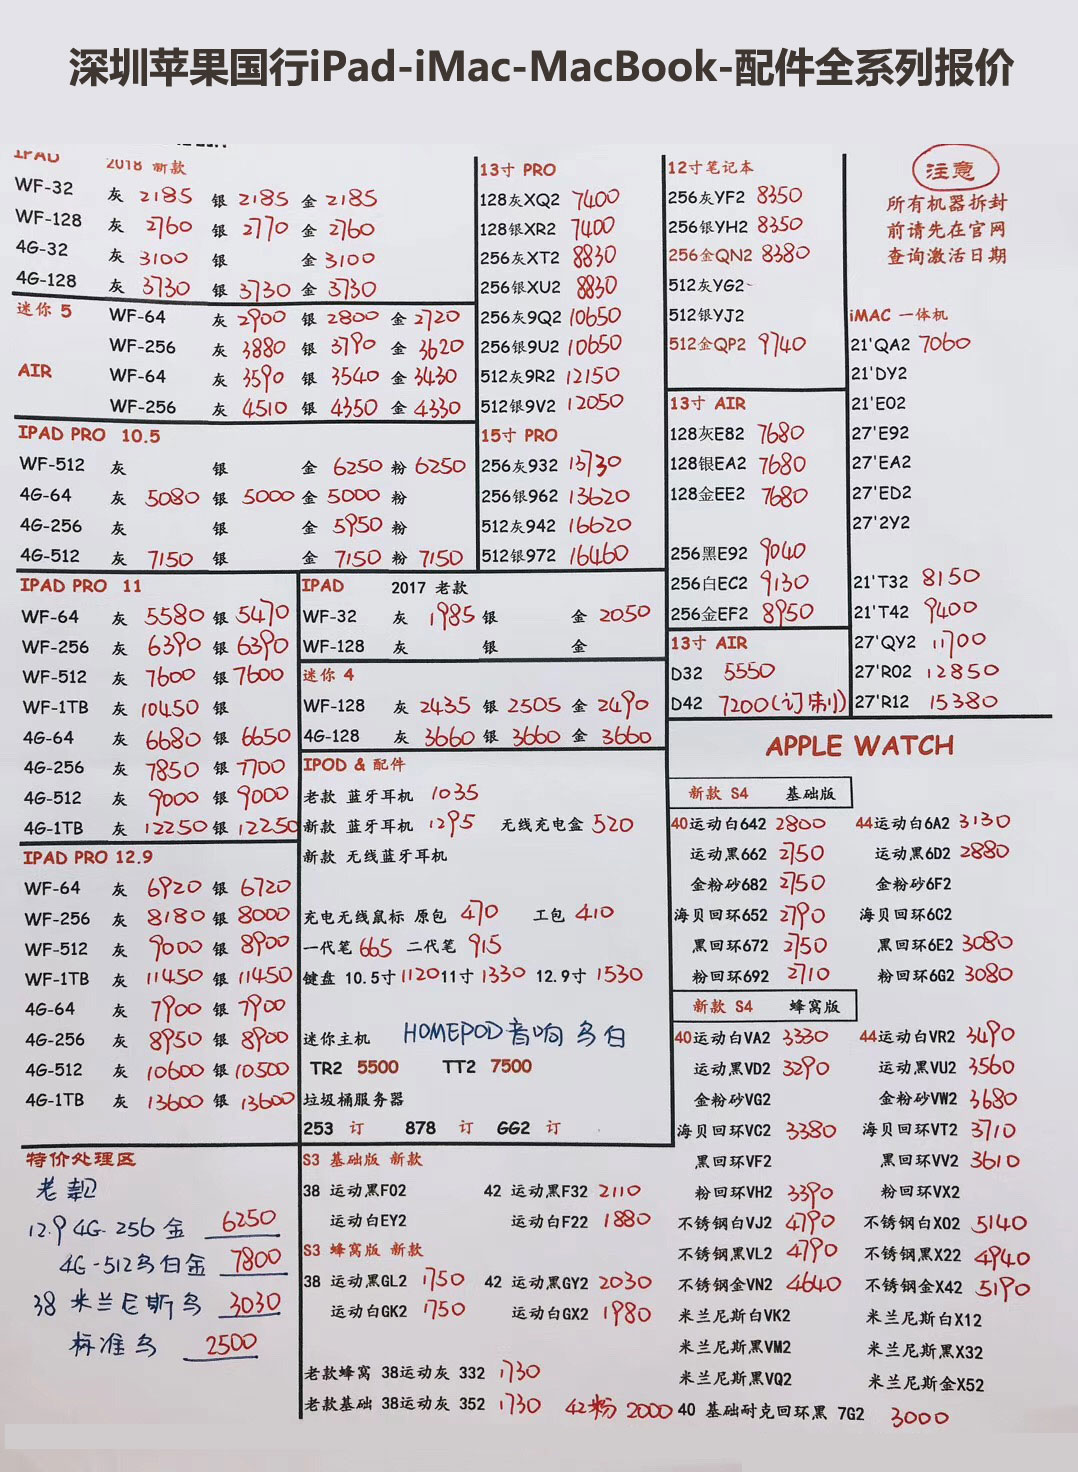 深圳苹果国行iPad-iMac-MacBook-配件全系列报价
IPAD 2018 新款
WF-32 灰 2185 银 2185 金 2185
WF-128 灰 2760 银 2770 金 2760
4G-32 灰 3100 银 金 3100
4G-128 灰 3730 银 3730 金 3730
迷你 5 WF-64 灰 2900 银 2800 金 2720
WF-256 灰 3880 银 3790 金 3620
AIR WF-64 灰 3590 银 3540 金 3430
WF-256 灰 4510 银 4350 金 4330
IPAD PRO 10.5
WF-512 灰 银 金 6250 粉 6250
4G-64 灰 5080 银 5000 金 5000 粉
4G-256 灰 银 金 5950 粉
4G-512 灰 7150 银 金 7150 粉 7150
13寸 PRO
128灰XQ2 7400
128银XR2 7400
256灰XT2 8830
256银XU2 8830
256灰9Q2 10650
256银9U2 10650
512灰9R2 12150
512银9V2 12050
15寸 PRO
256灰932 13730
256银962 13620
512灰942 16620
512银972 16460
12寸笔记本
256灰YF2 8350
256银YH2 8350
256金QN2 8380
512灰YG2
512银YJ2
512金QP2 9740
13寸 AIR
128灰E82 7680
128银EA2 7680
128金EE2 7680
256黑E92 9040
256白EC2 9130
256金EF2 8950
13寸 AIR
D32 5550
D42 7200(订制)
注意
所有机器拆封
前请先在官网
查询激活日期
iMAC 一体机
21'QA2 7060
21'DY2
21'E02
27'E92
27'EA2
27'ED2
27'2Y2
21'T32 8150
21'T42 9400
27'QY2 11700
27'R02 12850
27'R12 15380
IPAD PRO 11
WF-64 灰 5580 银 5470
WF-256 灰 6390 银 6390
WF-512 灰 7600 银 7600
WF-1TB 灰 10450 银
4G-64 灰 6680 银 6650
4G-256 灰 7850 银 7700
4G-512 灰 9000 银 9000
4G-1TB 灰 12250 银 12250
IPAD PRO 12.9
WF-64 灰 6920 银 6720
WF-256 灰 8180 银 8000
WF-512 灰 9000 银 8900
WF-1TB 灰 11450 银 11450
4G-64 灰 7900 银 7900
4G-256 灰 8950 银 8900
4G-512 灰 10600 银 10500
4G-1TB 灰 13600 银 13600
IPAD 2017 老款
WF-32 灰 1985 银 金 2050
WF-128 灰 银 金
迷你 4
WF-128 灰 2435 银 2505 金 2490
4G-128 灰 3660 银 3660 金 3660
IPOD & 配件
老款 蓝牙耳机 1035
新款 蓝牙耳机 1295 无线充电盒 520
新款 无线蓝牙耳机
充电无线鼠标 原包 470 工包 410
一代笔 665 二代笔 915
键盘 10.5寸 1120 11寸 1330 12.9寸 1530
迷你主机 HOMEPOD音响 乌白
TR2 5500 TT2 7500
垃圾桶服务器
253 订 878 订 GG2 订
APPLE WATCH
新款 S4 基础版
40运动白642 2800 44运动白6A2 3130
运动黑662 2750 运动黑6D2 2880
金粉砂682 2750 金粉砂6F2
海贝回环652 2790 海贝回环6C2
黑回环672 2750 黑回环6E2 3080
粉回环692 2710 粉回环6G2 3080
新款 S4 蜂窝版
40运动白VA2 3330 44运动白VR2 3490
运动黑VD2 3290 运动黑VU2 3560
金粉砂VG2 金粉砂VW2 3680
海贝回环VC2 3380 海贝回环VT2 3710
黑回环VF2 黑回环VV2 3610
粉回环VH2 3390 粉回环VX2
不锈钢白VJ2 4790 不锈钢白X02 5140
不锈钢黑VL2 4790 不锈钢黑X22 4940
不锈钢金VN2 4640 不锈钢金X42 5190
米兰尼斯白VK2 米兰尼斯白X12
米兰尼斯黑VM2 米兰尼斯黑X32
米兰尼斯黑VQ2 米兰尼斯金X52
40 基础耐克回环黑 7G2 3000
特价处理区
老靓
12.9 4G-256 金 6250
4G-512乌白金 7800
38 米兰尼斯乌 3030
标准乌 2500
S3 基础版 新款
38 运动黑F02 42 运动黑F32 2110
运动白EY2 运动白F22 1880
S3 蜂窝版 新款
38 运动黑GL2 1750 42 运动黑GY2 2030
运动白GK2 1750 运动白GX2 1980
老款蜂窝 38运动灰 332 1730
老款基础 38运动灰 352 1730 42粉 2000